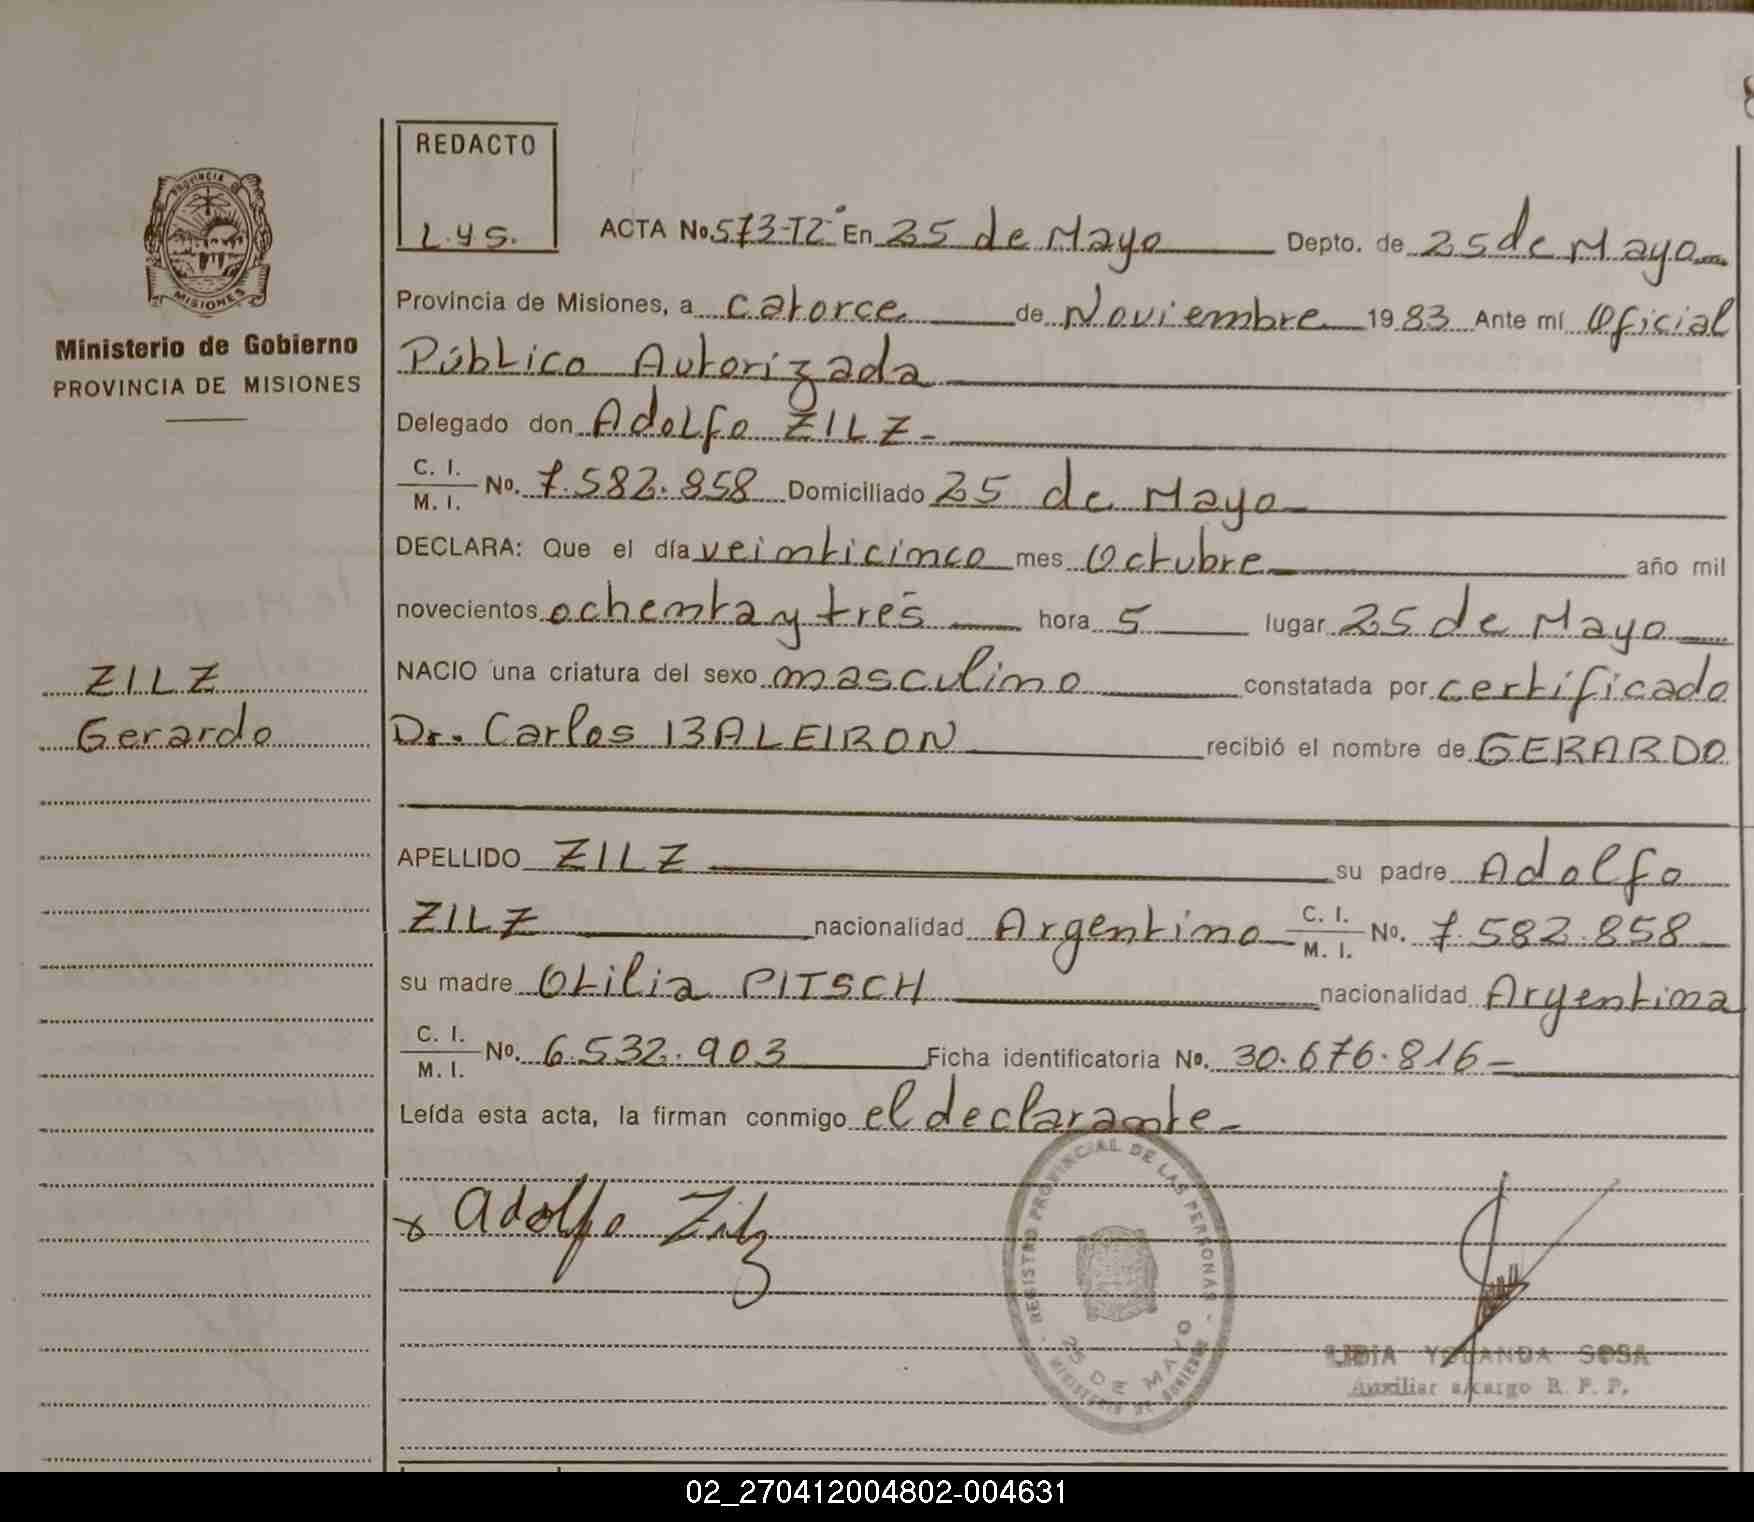 REDACTO
L.Y S.
PROVINCIA D
MISIONES
Ministerio de Gobierno
PROVINCIA DE MISIONES
ZILZ
Gerardo
ACTA No. 573-T2° En 25 de Mayo Depto. de 25 de Mayo
Provincia de Misiones, a catorce de Noviembre 1983 Ante mí Oficial
Público Autorizada
Delegado don Adolfo ZILZ
C. I. M. I. No. 7.582.858 Domiciliado 25 de Mayo
DECLARA: Que el día veinticinco mes Octubre año mil
novecientos ochenta y tres hora 5 lugar 25 de Mayo
NACIO una criatura del sexo masculino constatada por certificado
Dr. Carlos BALEIRON recibió el nombre de GERARDO
APELLIDO ZILZ su padre Adolfo
ZILZ nacionalidad Argentino C. I. M. I. No. 7.582.858
su madre Otilia PITSCH nacionalidad Argentina
C. I. M. I. No. 6.532.903 Ficha identificatoria No. 30.676.816
Leída esta acta, la firman conmigo el declarante
x Adolfo Zilz
REGISTRO PROVINCIAL DE LAS PERSONAS
25 DE MAYO
MINISTERIO DE GOBIERNO
YOLANDA SOSA
Auxiliar a/cargo R. P. P.
02_270412004802-004631